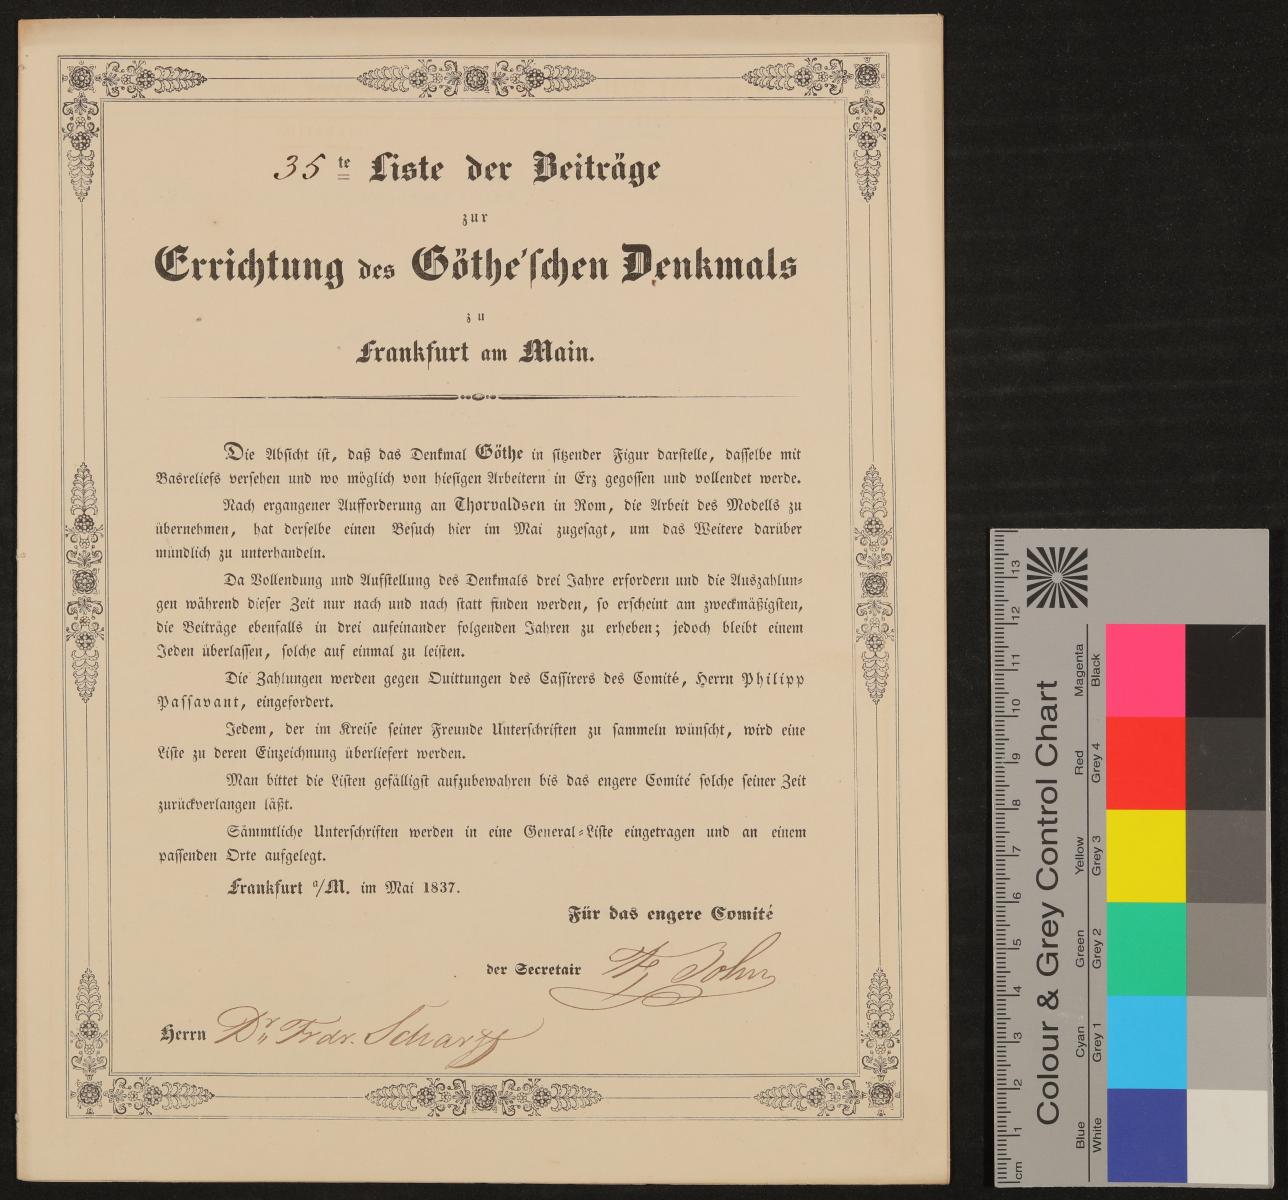 35te Liste der Beiträge
zur
Errichtung des Göthe'schen Denkmals
zu
Frankfurt am Main.
Die Absicht ist, daß das Denkmal Göthe in sitzender Figur darstelle, dasselbe mit
Basreliefs versehen und wo möglich von hiesigen Arbeitern in Erz gegossen und vollendet werde.
Nach ergangener Aufforderung an Thorvaldsen in Rom, die Arbeit des Modells zu
übernehmen, hat derselbe einen Besuch hier im Mai zugesagt, um das Weitere darüber
mündlich zu unterhandeln.
Da Vollendung und Aufstellung des Denkmals drei Jahre erfordern und die Auszahlun-
gen während dieser Zeit nur nach und nach statt finden werden, so erscheint am zweckmäßigsten,
die Beiträge ebenfalls in drei aufeinander folgenden Jahren zu erheben; jedoch bleibt einem
Jeden überlassen, solche auf einmal zu leisten.
Die Zahlungen werden gegen Quittungen des Cassirers des Comité, Herrn Philipp
Passavant, eingefordert.
Jedem, der im Kreise seiner Freunde Unterschriften zu sammeln wünscht, wird eine
Liste zu deren Einzeichnung überliefert werden.
Man bittet die Listen gefälligst aufzubewahren bis das engere Comité solche seiner Zeit
zurückverlangen läßt.
Sämmtliche Unterschriften werden in eine General-Liste eingetragen und an einem
passenden Orte aufgelegt.
Frankfurt a/M. im Mai 1837.
Für das engere Comité
der Secretair
Herrn Dr. Frdr. Scharff
Colour & Grey Control Chart
Blue Cyan Green Yellow Red Magenta
White Grey 1 Grey 2 Grey 3 Grey 4 Black
cm 1 2 3 4 5 6 7 8 9 10 11 12 13